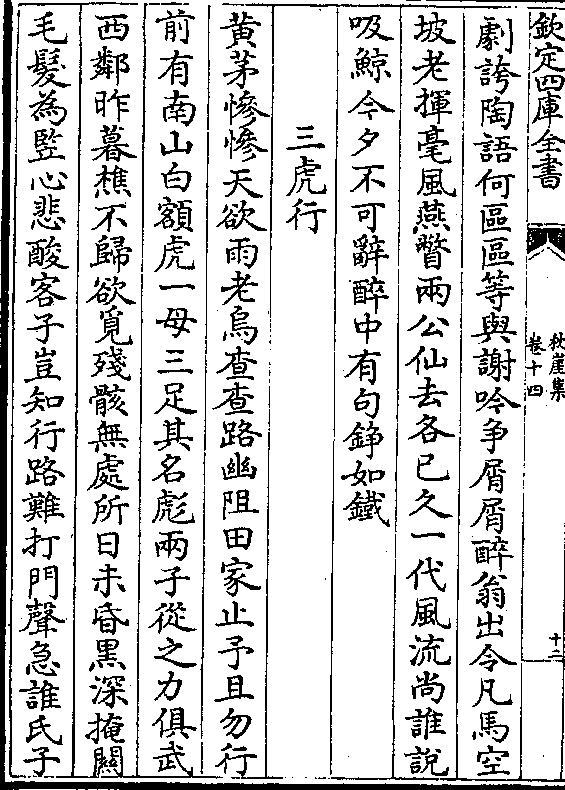 欽定四庫全書
秋崖集
卷十四
十二
劇誇陶語何區區等與謝吟争屑屑醉翁出令凡馬空
坡老揮毫風燕瞥兩公仙去各已久一代風流尚誰說
吸鯨今夕不可辭醉中有句錚如鐵
三虎行
黄茅惨惨天欲雨老烏查查路幽阻田家止予且勿行
前有南山白額虎一母三足其名彪兩子從之力俱武
西鄰昨暮樵不歸欲覓殘骸無處所日未昏黑深掩關
毛髮為竪心悲酸客子豈知行路難打門聲急誰氏子